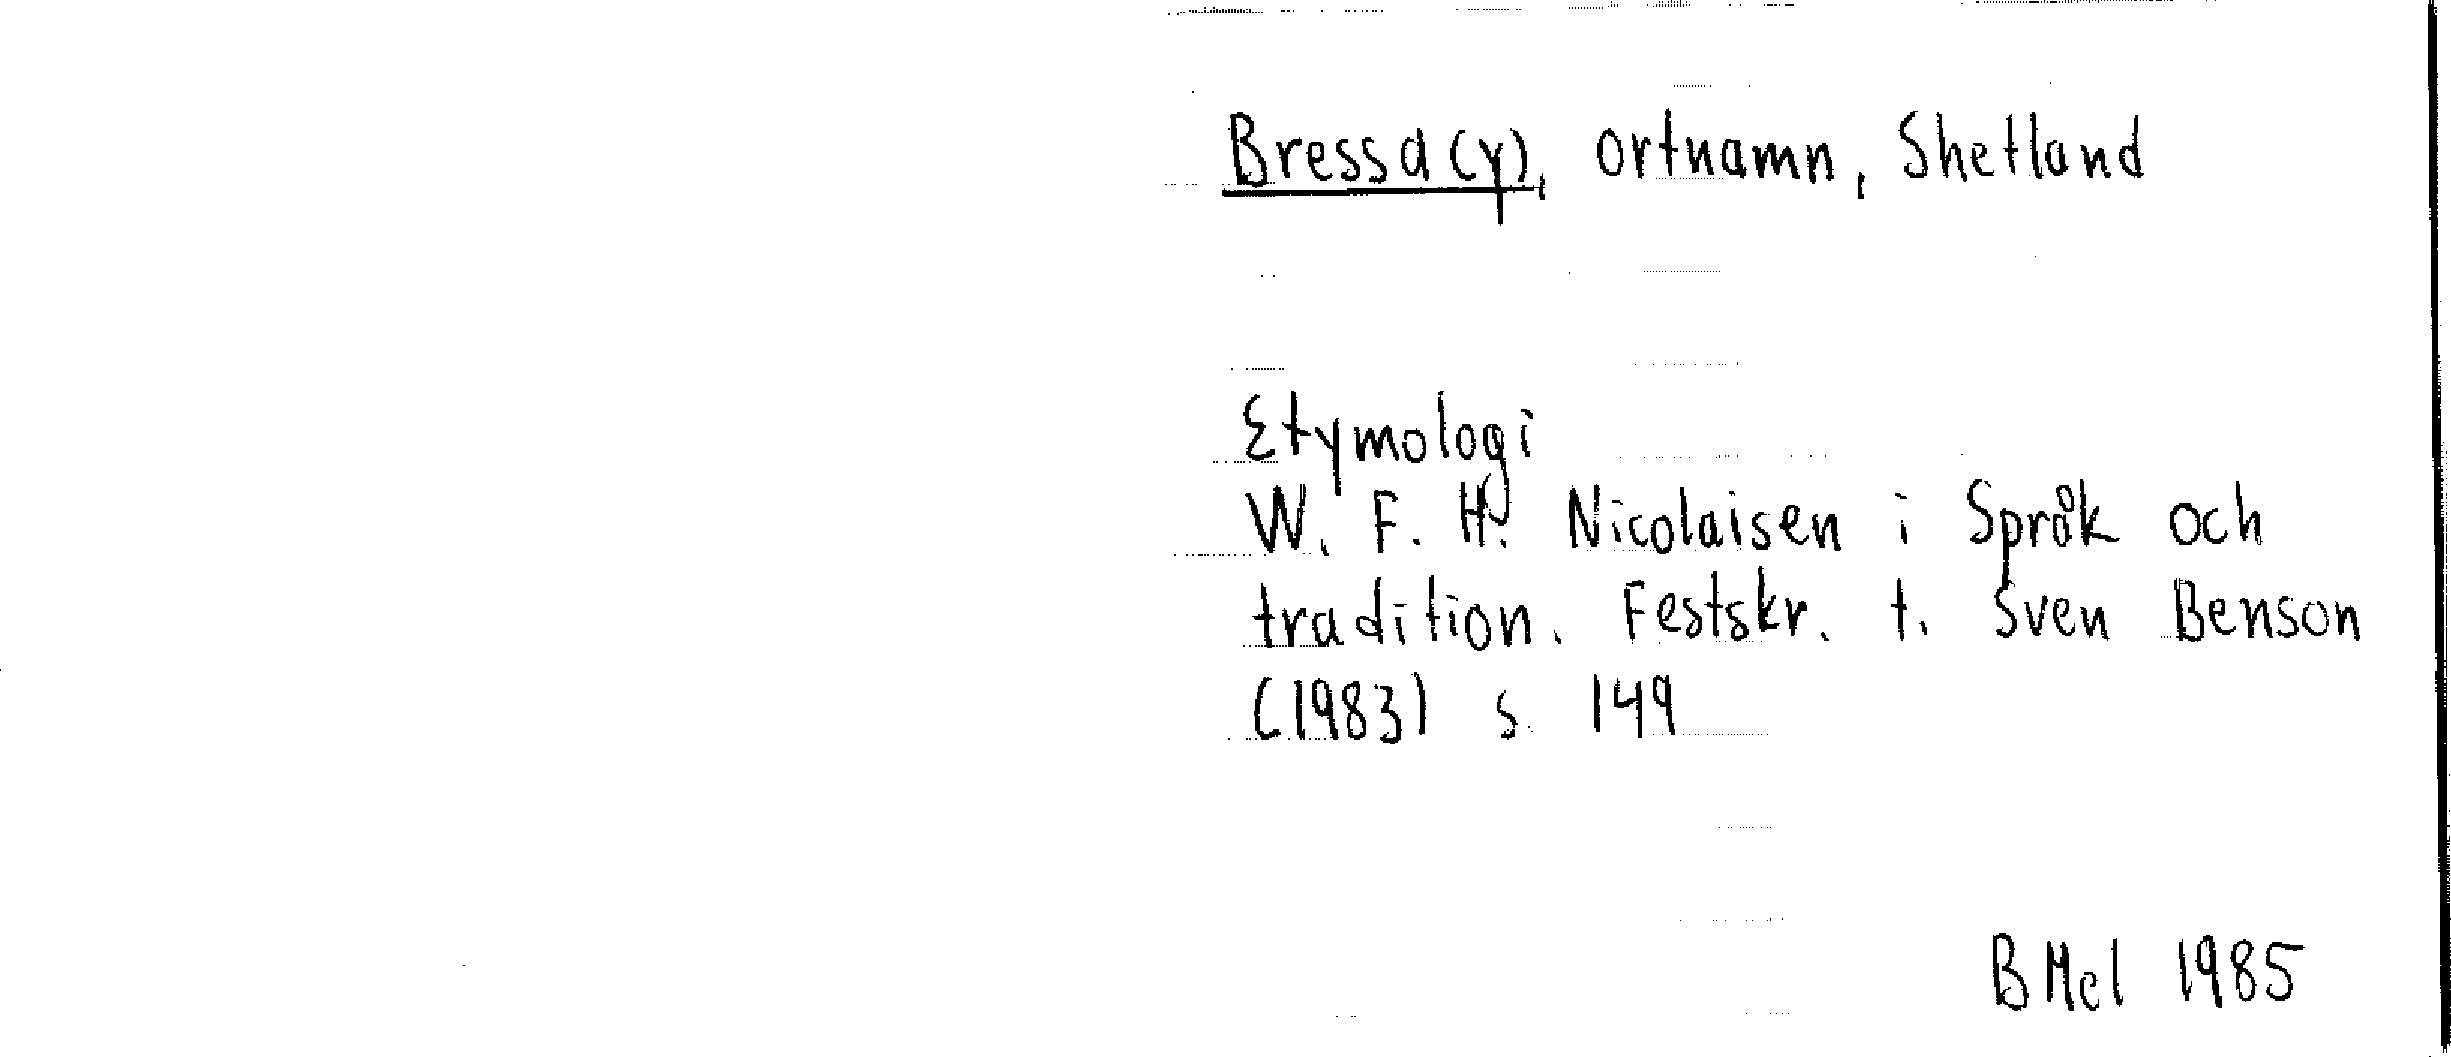 Bressa(y), ortnamn, Shetland
Etymologi
W. F. H. Nicolaisen i Språk och
tradition. Festskr. t. Sven Benson
(1983) s. 149
BMel 1985